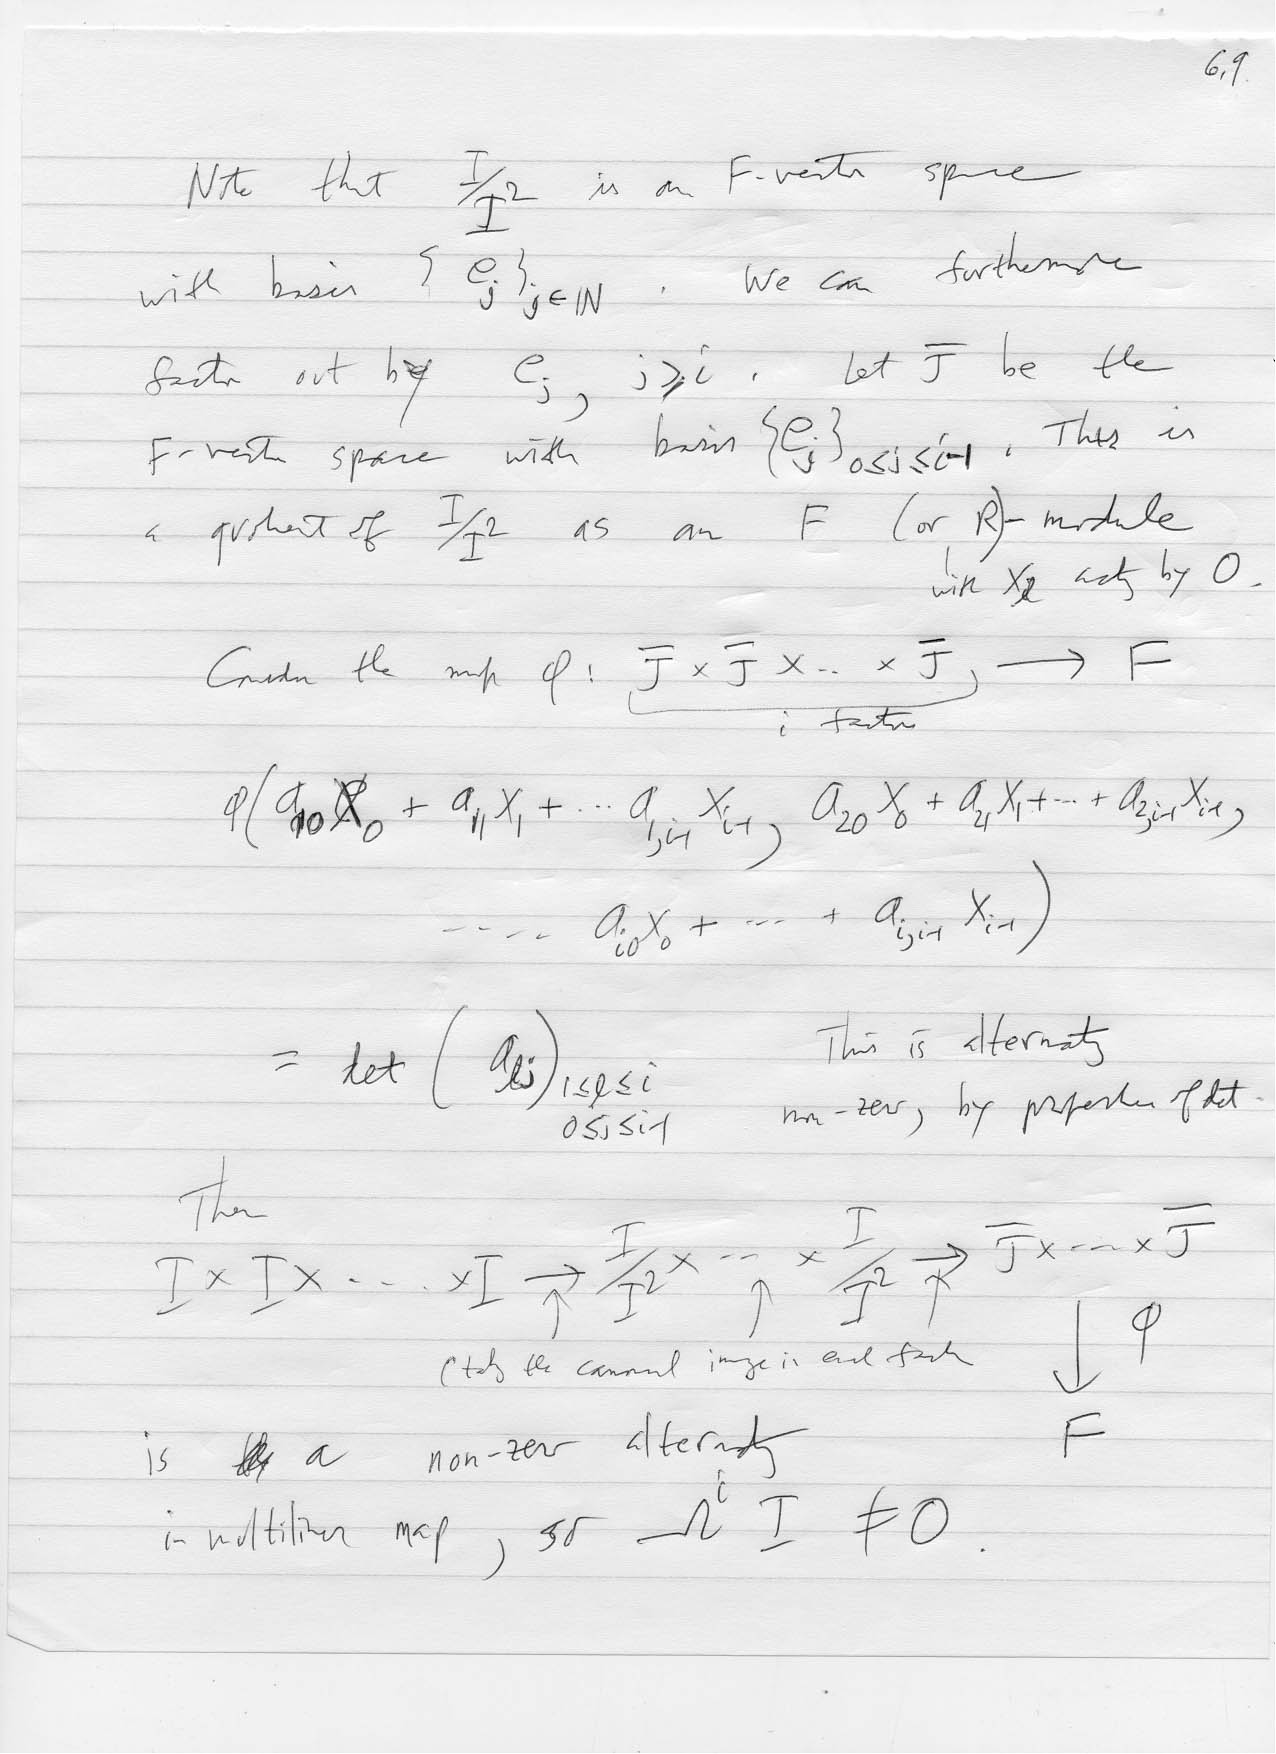 6.9.
Note that I/I² is an F-vector space
with basis {e_j}_{j∈ℕ}. We can furthermore
factor out by e_j, j≥i. Let J̄ be the
F-vector space with basis {e_j}_{0≤j≤i-1}. This is
a quotient of I/I² as an F (or R)-module
with x_l acting by 0.
Consider the map φ: J̄ × J̄ × .. × J̄ → F
i factors
φ(a_{10}X_0 + a_{11}X_1 + ... a_{1,i-1}X_{i-1}, a_{20}X_0 + a_{21}X_1 + ... + a_{2,i-1}X_{i-1},
.... a_{i0}X_0 + ... + a_{i,i-1}X_{i-1})
= det (a_{lj})_{1≤l≤i 0≤j≤i-1} This is alternating
non-zero, by properties of det.
Then
I × I × .... × I → I/I² × ... × I/I² → J̄ × ... × J̄
(take the canonical image in each factor
↓ φ
F
is a non-zero alternating
i-multilinear map, so Λ^i I ≠ 0.